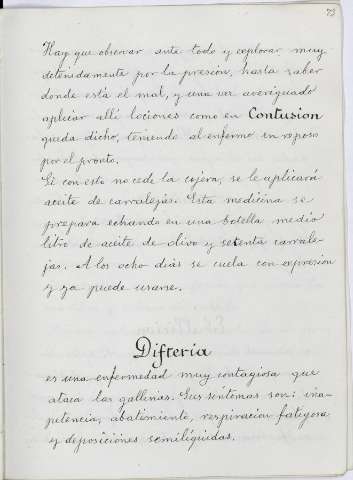 73
Hay que observar ante todo y explorar muy
detenidamente por la presión, hasta saber
donde está el mal, y una vez averiguado
aplicar allí lociones como en Contusion
queda dicho, teniendo al enfermo en reposo
por el pronto.
Si con esto no cede la cojera, se le aplicará
aceite de carralejas. Esta medicina se
prepara echando en una botella medio
litro de aceite de olivo y setenta carrale-
jas. A los ocho dias se cuela con expresión
y ya puede usarse.
Difteria
es una enfermedad muy contagiosa que
ataca las gallinas. Sus sintomas son: ina-
petencia, abatimiento, respiracion fatigosa
y deposiciónes semilíquidas.